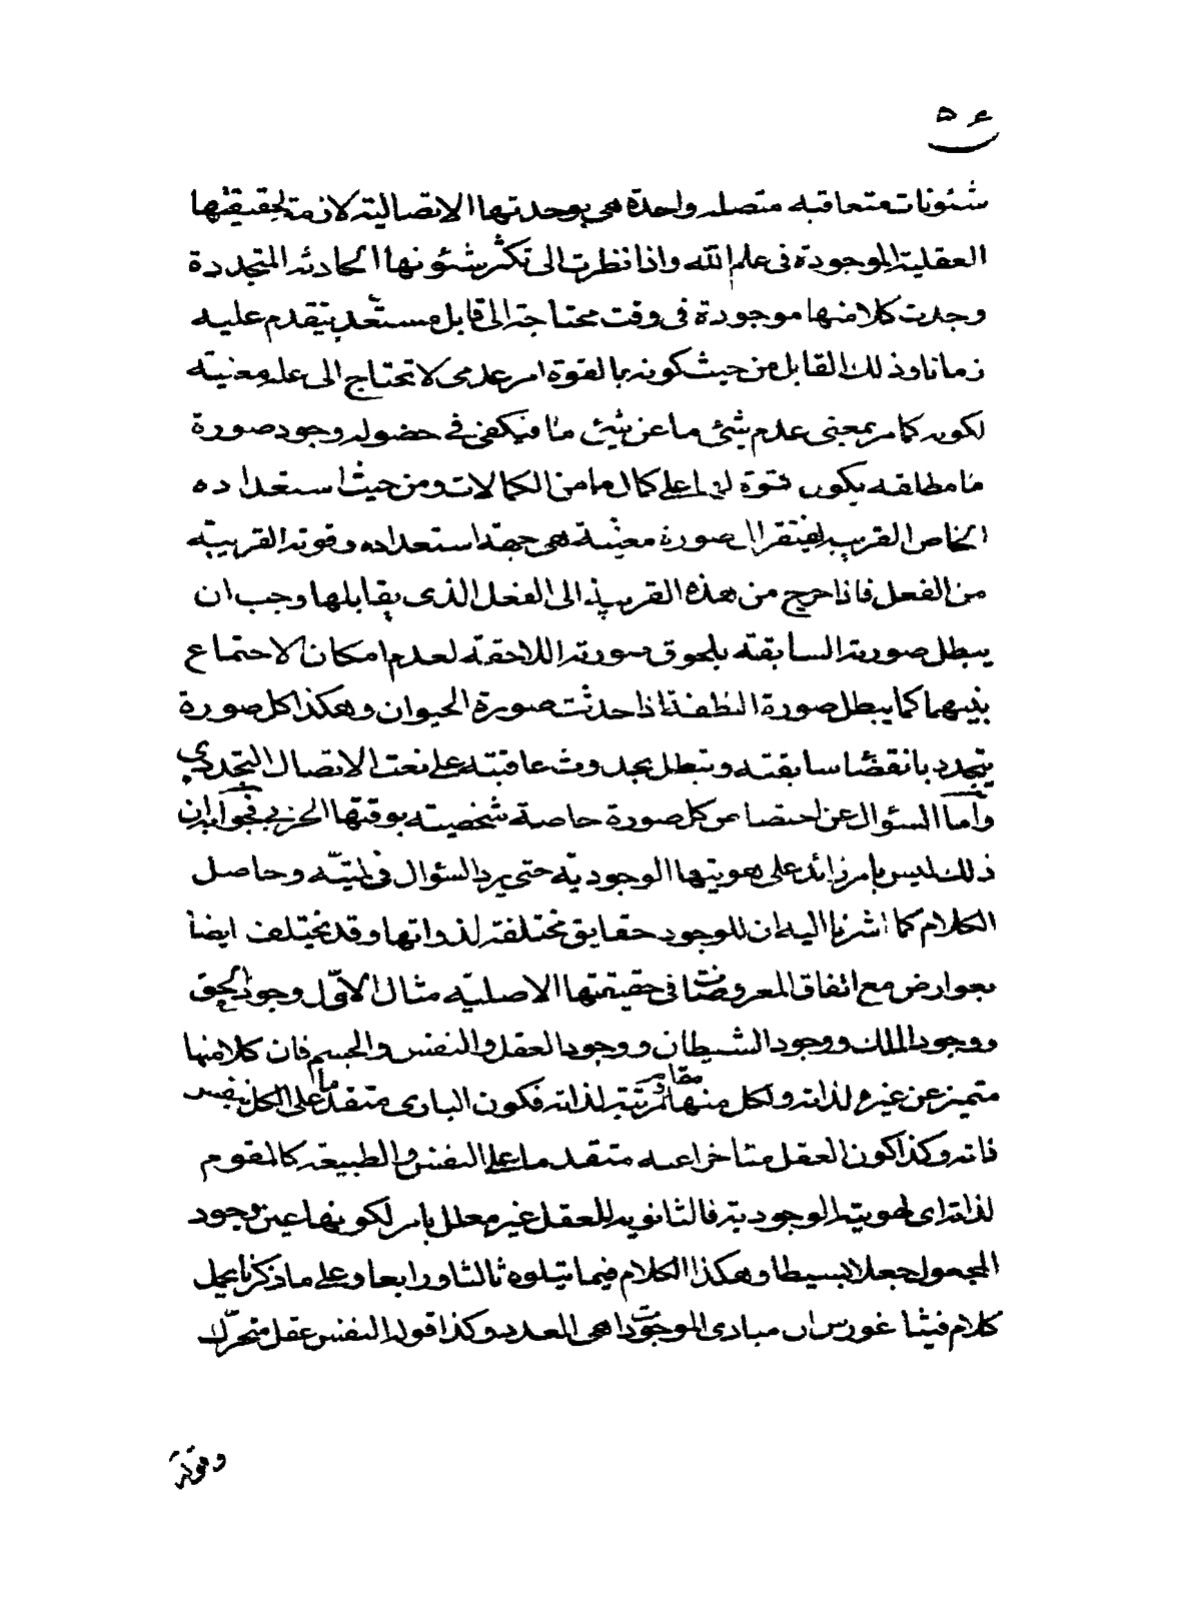 ٥٤
شئونات متعاقبه متصله واحدة هى بوحدتها الاتصالية لازمة لحقيقتها
العقلية الموجودة فى علم الله واذا نظرت الى تكثر شئونها الحادثه المتجددة
وجدت كلا منها موجودة فى وقت محتاجة الى قابل مستعد يتقدم عليه
زمانا وذلك القابل من حيث كونه بالقوة امر عدمى لا تحتاج الى علة معنيته
لكونه كما مر بمعنى عدم شئ ما عن شئ ما فيكفى فى حضوله وجود صورة
ما مطلقه يكون قوة لها على كمال ما من الكمالات ومن حيث استعداده
الخاص القريب يفتقر الى صورة معينة هى جهة استعداده وقوته القريبة
من الفعل فاذا خرج من هذه القريبة الى الفعل الذى يقابلها وجب ان
يبطل صورته السابقة بلحوق صورته اللاحقة لعدم امكان الاجتماع
بينهما كما يبطل صورة النطفة اذا حدثت صورة الحيوان وهكذا كل صورة
يتجدد بانقضا سابقته وتبطل بحدوث عاقبته على نعت الاتصال التجددي
وأما السئوال عن اختصاص كل صورة خاصة شخصيته بوقتها الجزيى فجوابه ان
ذلك ليس بامر زائد على هويتها الوجودية حتى يرد السئوال فى لميته وحاصل
الكلام كما اشرنا اليه ان للوجود حقايق مختلفة لذواتها وقد يختلف ايضا
بعوارض مع اتفاق المعروضات فى حقيقتها الاصلية مثال الاول وجود الحق
ووجود الملك ووجود الشيطان ووجود العقل والنفس والجسم فان كلا منها
متميز عن غيره لذاته ولكل منها مقام ومرتبة لذاته فكون البارى متقدما على الكل بنفس
ذاته وكذا كون العقل متاخرا عنه متقدما على النفس والطبيعة كالمقوم
لذاته اى لهويته الوجودية فالثانوية للعقل غير معلل بامر لكونها عين وجود
المجعول جعلا بسيطا وهكذا الكلام فيما يتلوه ثالثا ورابعا وعلى ما ذكرنا يحمل
كلام فيثاغورس ان مبادى الموجودات هى العدد وكذا قوله النفس عقل متحرك
وقوله